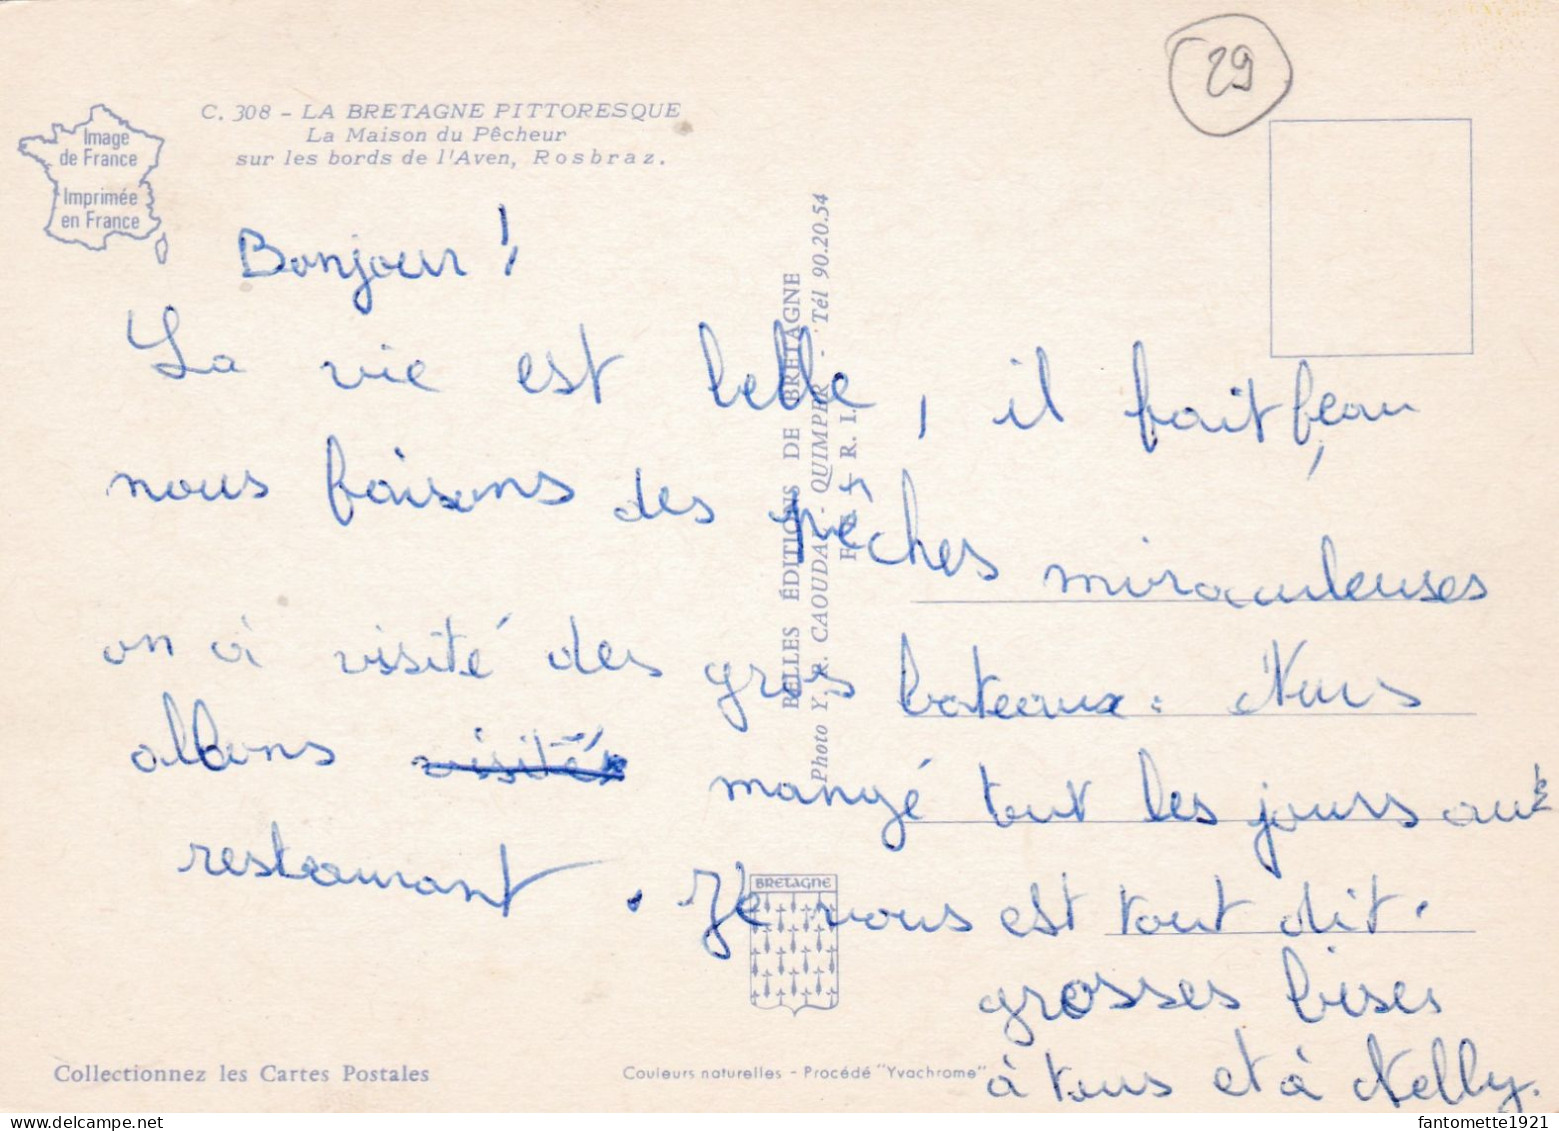 29
C. 308 - LA BRETAGNE PITTORESQUE
La Maison du Pêcheur
sur les bords de l'Aven, Rosbraz.
Image
de France
Imprimée
en France
Bonjour !
La vie est belle, il fait beau,
nous faisons des pêches miraculeuses
on a visité des gros bateaux. Nous
allons visité mangé tout les jours aux
restaurant. Je vous est tout dit.
grosses bises
à tous et à Nelly.
BELLES ÉDITIONS DE BRETAGNE
Photo Y. R. CAOUDAL - QUIMPER - Tél 90.20.54
R. I.
BRETAGNE
Collectionnez les Cartes Postales
Couleurs naturelles - Procédé "Yvachrome"
fantomette1921